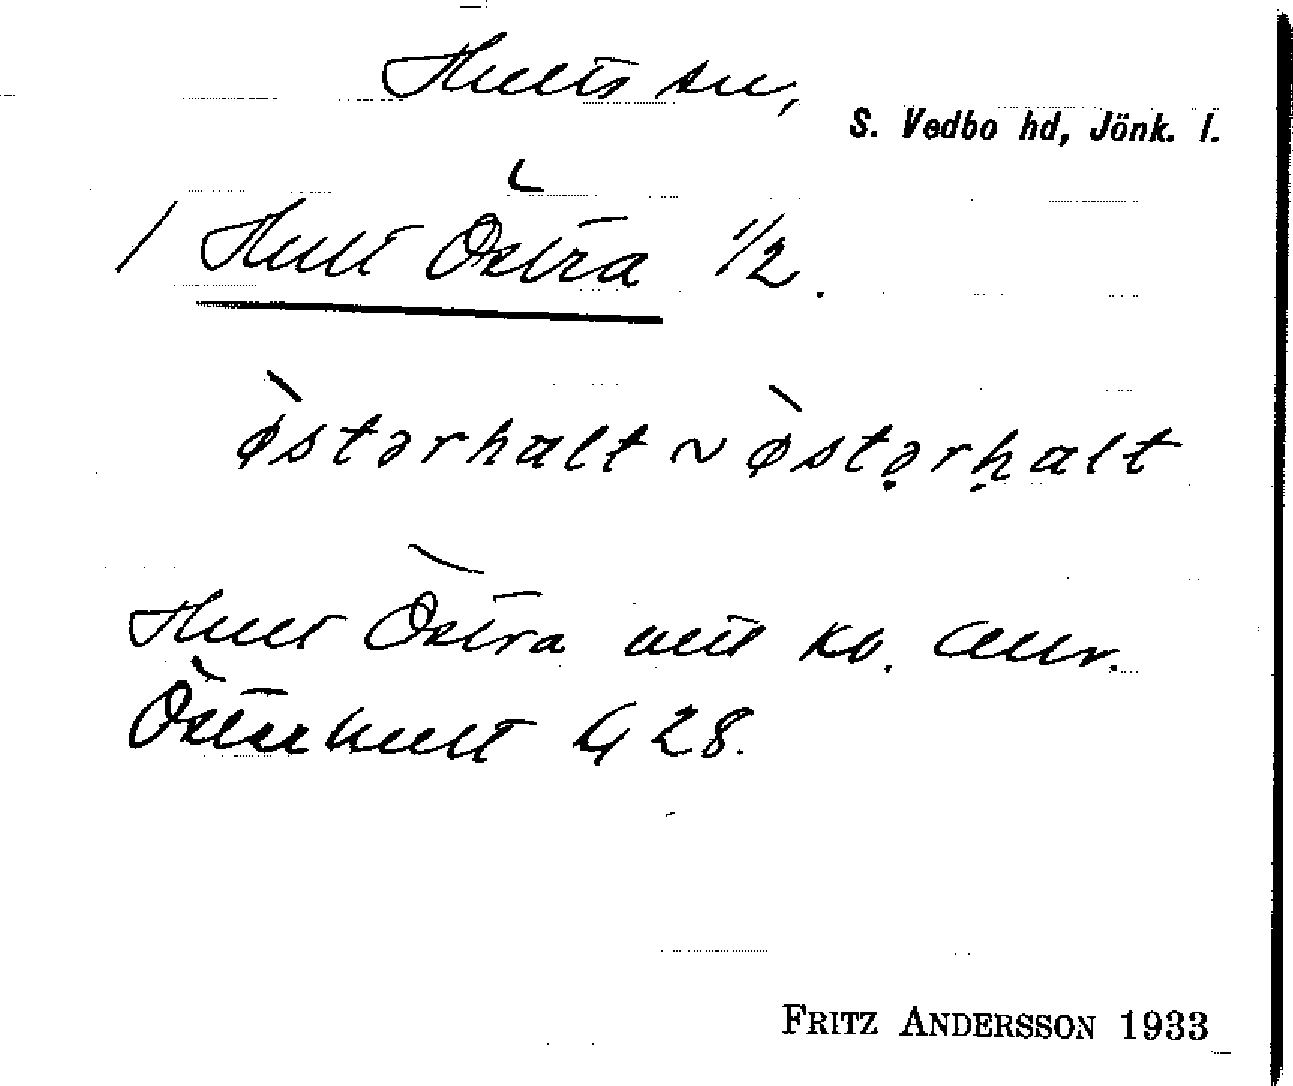 Hults sn,
S. Vedbo hd, Jönk. l.
1 Hult Östra 1/2.
østərhalt ~ østərhalt
Hult Östra
Österhult 28.
FRITZ ANDERSSON 1933